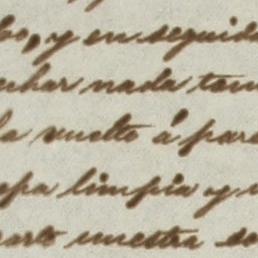 bo, y en seguida
char nada tan
la vuelto á par
epa limpia y
parte nuestra so